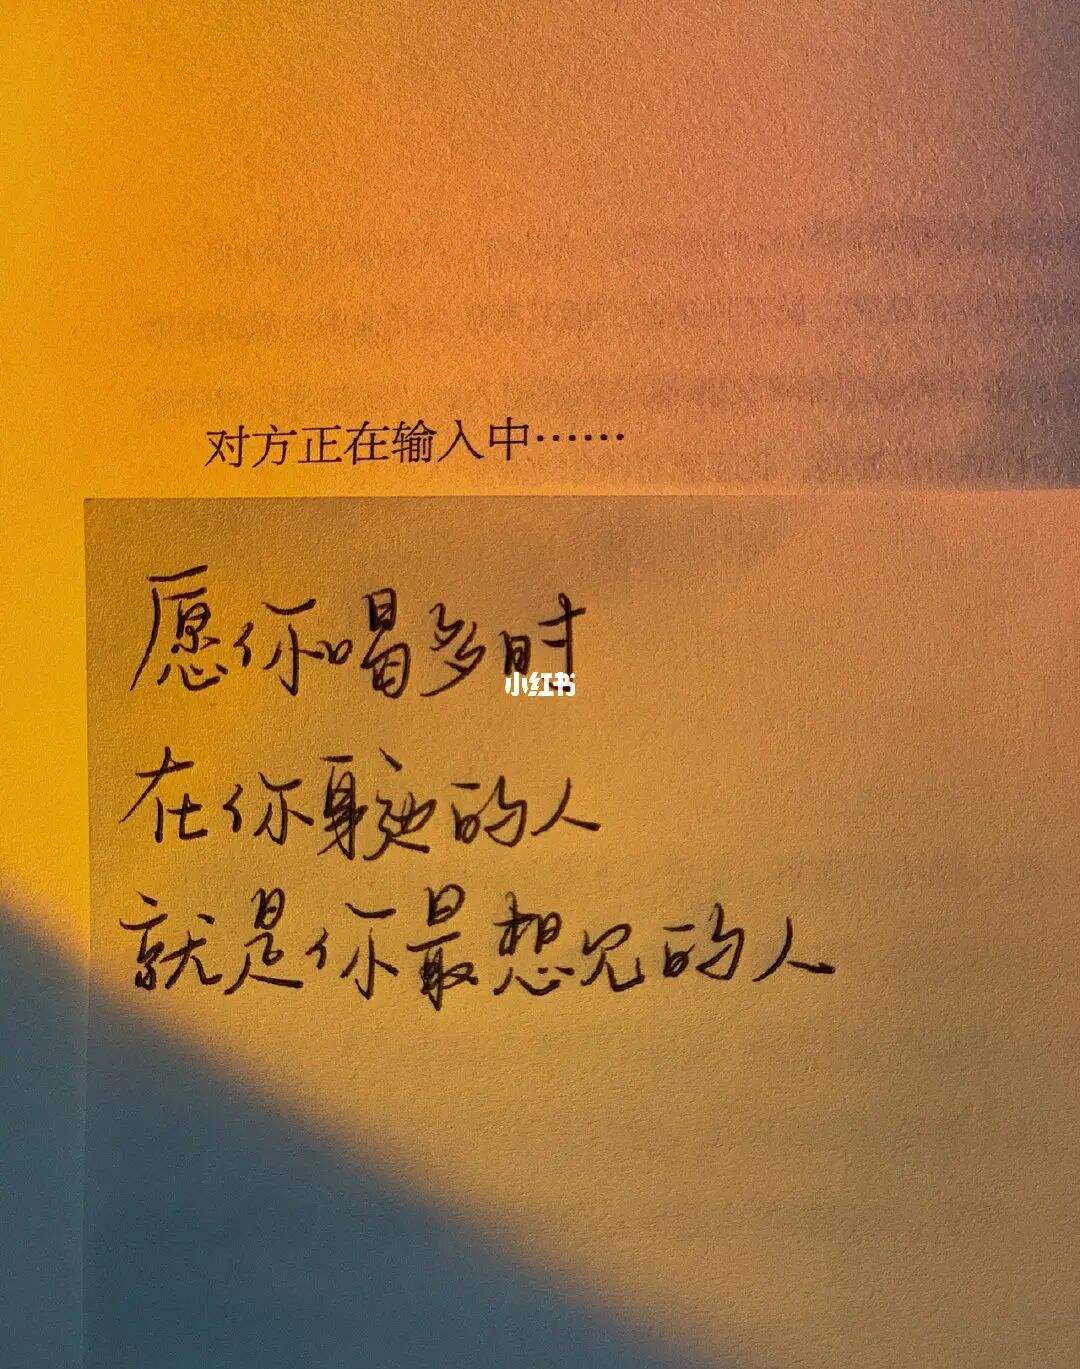 对方正在输入中……
愿你唱多时
小红书
在你身边的人
就是你最想见的人